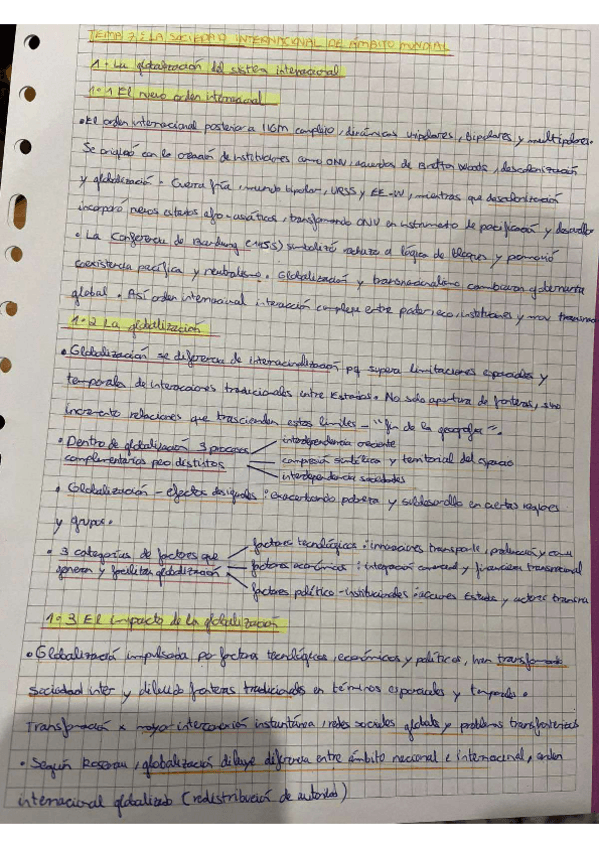 TEMA 7: LA SOCIEDAD INTERNACIONAL DE ÁMBITO MUNDIAL
1. La globalización del sistema internacional
1.1 El nuevo orden internacional
• El orden internacional posterior a IIGM complejo, dinámicas unipolares, bipolares y multipolares.
Se originó con la creación de instituciones como ONU, acuerdos de Bretton Woods, descolonización
y globalización. Guerra fría, mundo bipolar, URSS y EE-UU, mientras que descolonización
incorporó nuevos estados afro-asiáticos, transformando ONU en instrumento de pacificación y desarrollo
• La Conferencia de Bandung (1955) simbolizó rechazo a lógica de bloques y promovió
coexistencia pacífica y neutralismo. Globalización y transnacionalismo cambiaron gobernanza
global. Así orden internacional interacción compleja entre poder eco, instituciones y mov
1.2 La globalización
• Globalización se diferencia de internacionalización pq supera limitaciones espaciales y
temporales de interacciones tradicionales entre Estados. No solo apertura de fronteras, sino
incremento relaciones que trascienden estos límites - "fin de la geografía".
• Dentro de globalización 3 procesos
complementarios pero distintos
interdependencia creciente
compresión y territorial del espacio
interdependencia sociedades
• Globalización - efectos desiguales: exacerbando pobreza y subdesarrollo en ciertas regiones
y grupos.
• 3 categorías de factores que
generan y facilitan globalización
factores tecnológicos: innovaciones transporte, producción y comu
factores económicos: integración comercial y financiera transnacional
factores político-institucionales: acciones Estado y actores transna
1.3 El impacto de la globalización
• Globalizació impulsada por factores tecnológicos, económicos y políticos, han transformado
sociedad inter y diluido fronteras tradicionales en términos espaciales y temporales.
Transformación x mayor interconexión instantánea, redes sociales globales y problemas transfronterizos
• Según Rosenau, globalización diluye diferencia entre ámbito nacional e internacional, orden
internacional globalizado (redistribución de autoridad)